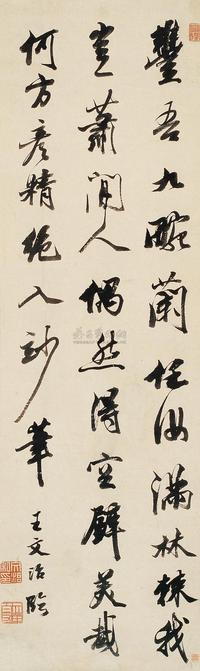 豐吾九畹蘭任汝滿林棘我
豈蕭閒人偶然得空壁美哉
何方彥精絕入妙筆
王文治臨